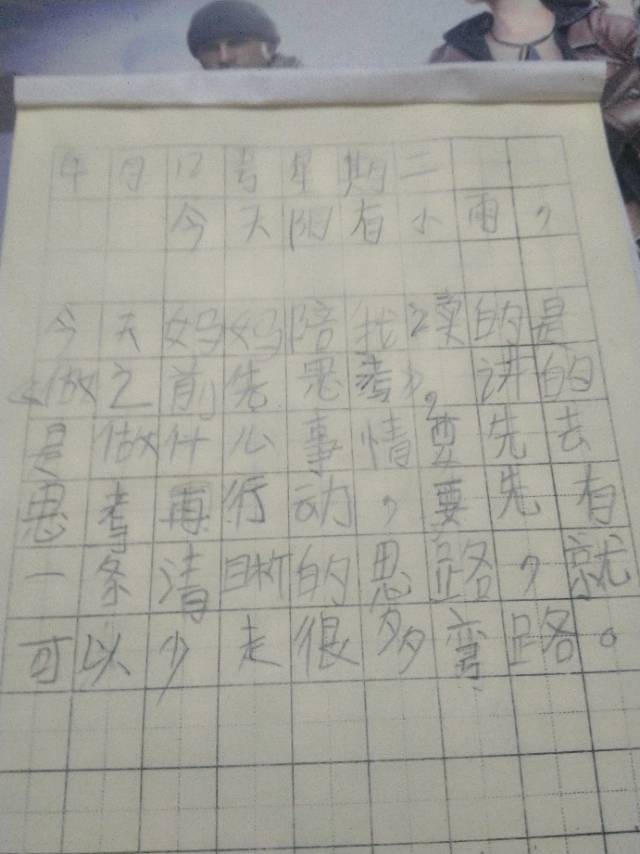 4月12号星期二
今天阴有小雨，
今天妈妈陪我读的是
《做之前先思考》。讲的
是做什么事情要先去
思考再行动，要先有
一条清晰的思路，就
可以少走很多弯路。